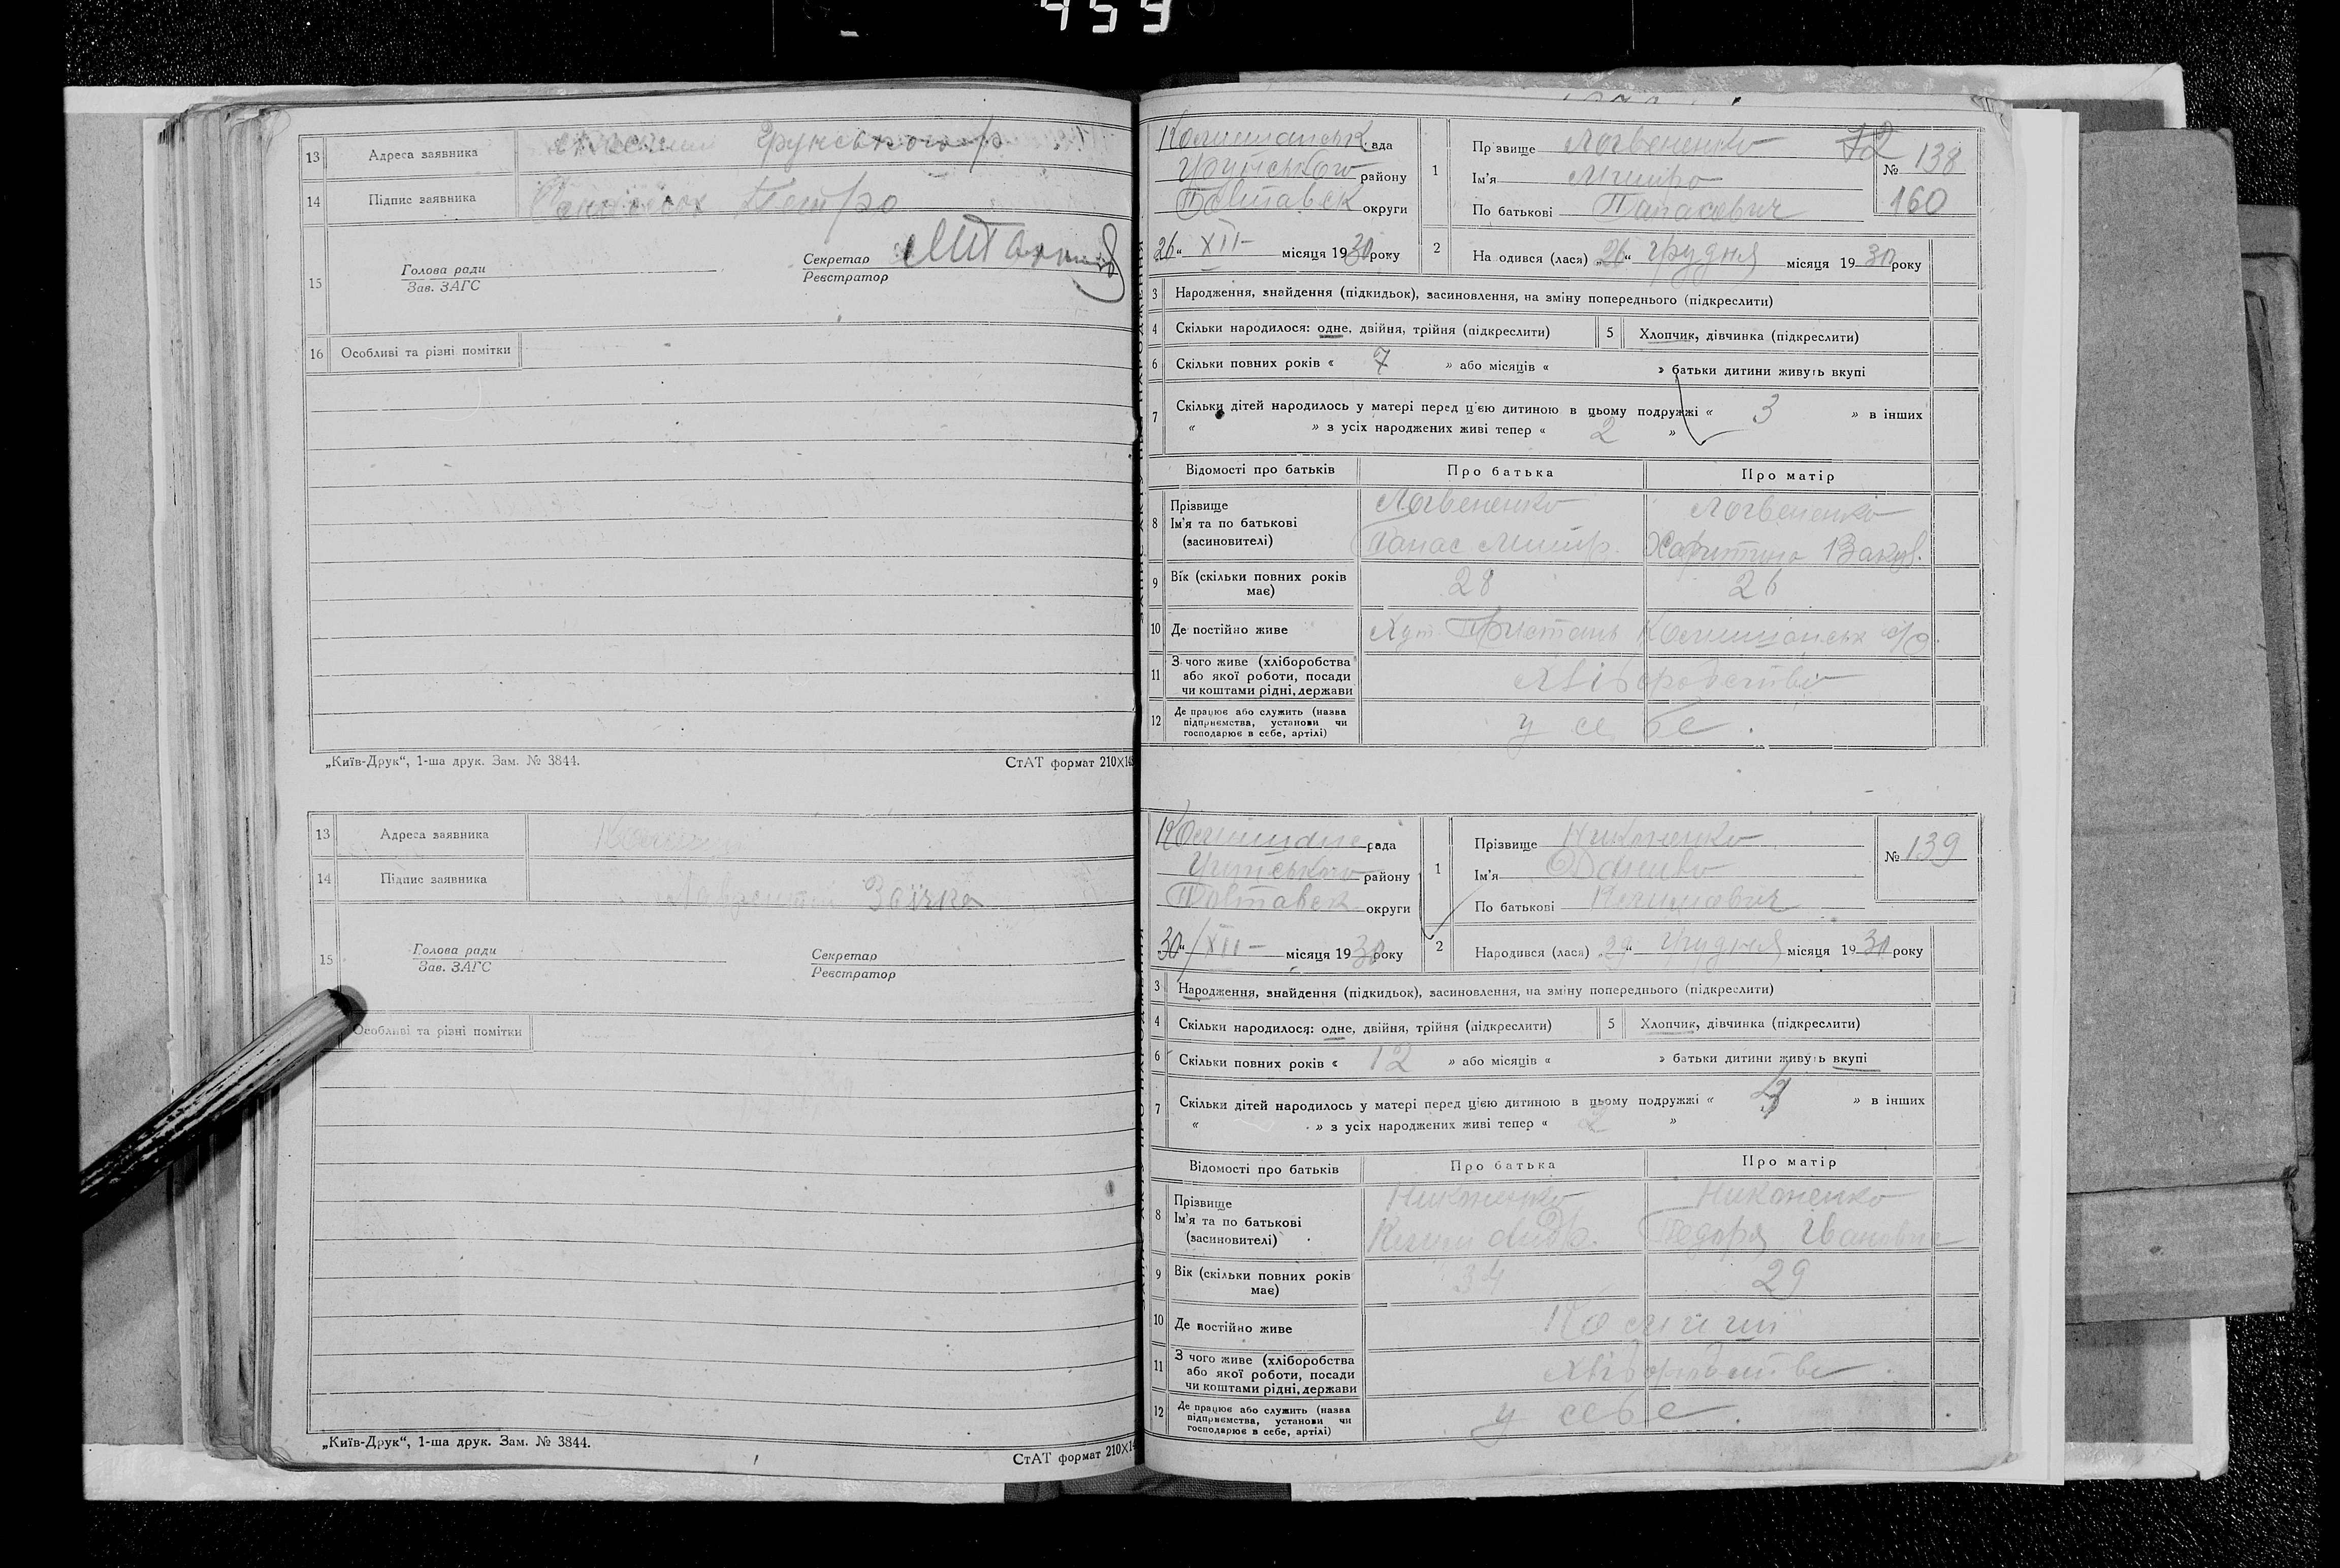 459
13 Адреса заявника Грунського р
14 Підпис заявника Петро
15 Голова ради
Зав. ЗАГС
Секретар
Реєстратор
16 Особливі та різні помітки
„Київ-Друк“, 1-ша друк. Зам. № 3844.
СтАТ формат 210X14
13 Адреса заявника
14 Підпис заявника Заїчка
15 Голова ради
Зав. ЗАГС
Секретар
Реєстратор
Особливі та різні помітки
„Київ-Друк“, 1-ша друк. Зам. № 3844.
СтАТ формат 210X14
рада
району
Полтавськ округи
26 “ XII – місяця 1930 року
1 Прізвище Логвененко 72
Ім'я Митро
По батькові Панасович
№ 138
160
2 Народився (лася) „26“ грудня місяця 1930 року
3 Народження, знайдення (підкидьок), засиновлення, на зміну попереднього (підкреслити)
4 Скільки народилося: одне, двійня, трійня (підкреслити) 5 Хлопчик, дівчинка (підкреслити)
6 Скільки повних років « 7 » або місяців « » батьки дитини живуть вкупі
7 Скільки дітей народилось у матері перед цією дитиною в цьому подружжі « 3 » в інших
« » з усіх народжених живі тепер « 2 »
Відомості про батьків Про батька Про матір
8 Прізвище Логвененко Логвененко
Ім'я та по батькові
(засиновителі) Панас Митр. Харитина Вакул.
9 Вік (скільки повних років має) 28 26
10 Де постійно живе Хут. Пристань с/р.
11 З чого живе (хліборобства
або якої роботи, посади
чи коштами рідні, держави Хліборобство
12 Де працює або служить (назва
підприємства, установи чи
господарює в себе, артілі) у себе.
рада
району
Полтавськ округи
30 “ XII – місяця 1930 року
1 Прізвище Никоненко
Ім'я Данило
По батькові Климович
№ 139
2 Народився (лася) „29“ Грудня місяця 1930 року
3 Народження, знайдення (підкидьок), засиновлення, на зміну попереднього (підкреслити)
4 Скільки народилося: одне, двійня, трійня (підкреслити) 5 Хлопчик, дівчинка (підкреслити)
6 Скільки повних років « 12 » або місяців « » батьки дитини живуть вкупі
7 Скільки дітей народилось у матері перед цією дитиною в цьому подружжі « » в інших
« » з усіх народжених живі тепер « 2 »
Відомості про батьків Про батька Про матір
8 Прізвище Никоненко Никоненко
Ім'я та по батькові
(засиновителі) Клим Іванівна
9 Вік (скільки повних років має) 34 29
10 Де постійно живе
11 З чого живе (хліборобства
або якої роботи, посади
чи коштами рідні, держави Хліборобство
12 Де працює або служить (назва
підприємства, установи чи
господарює в себе, артілі) у себе.